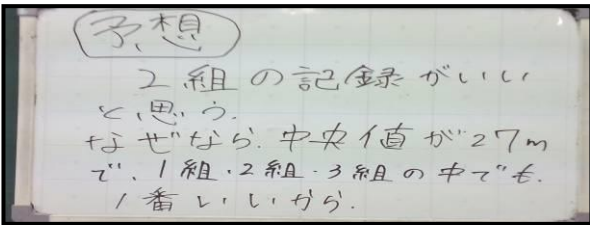 予想
2組の記録がいい
と思う.
なぜなら.中央値が27m
で、1組・2組・3組の中でも.
1番いいから.